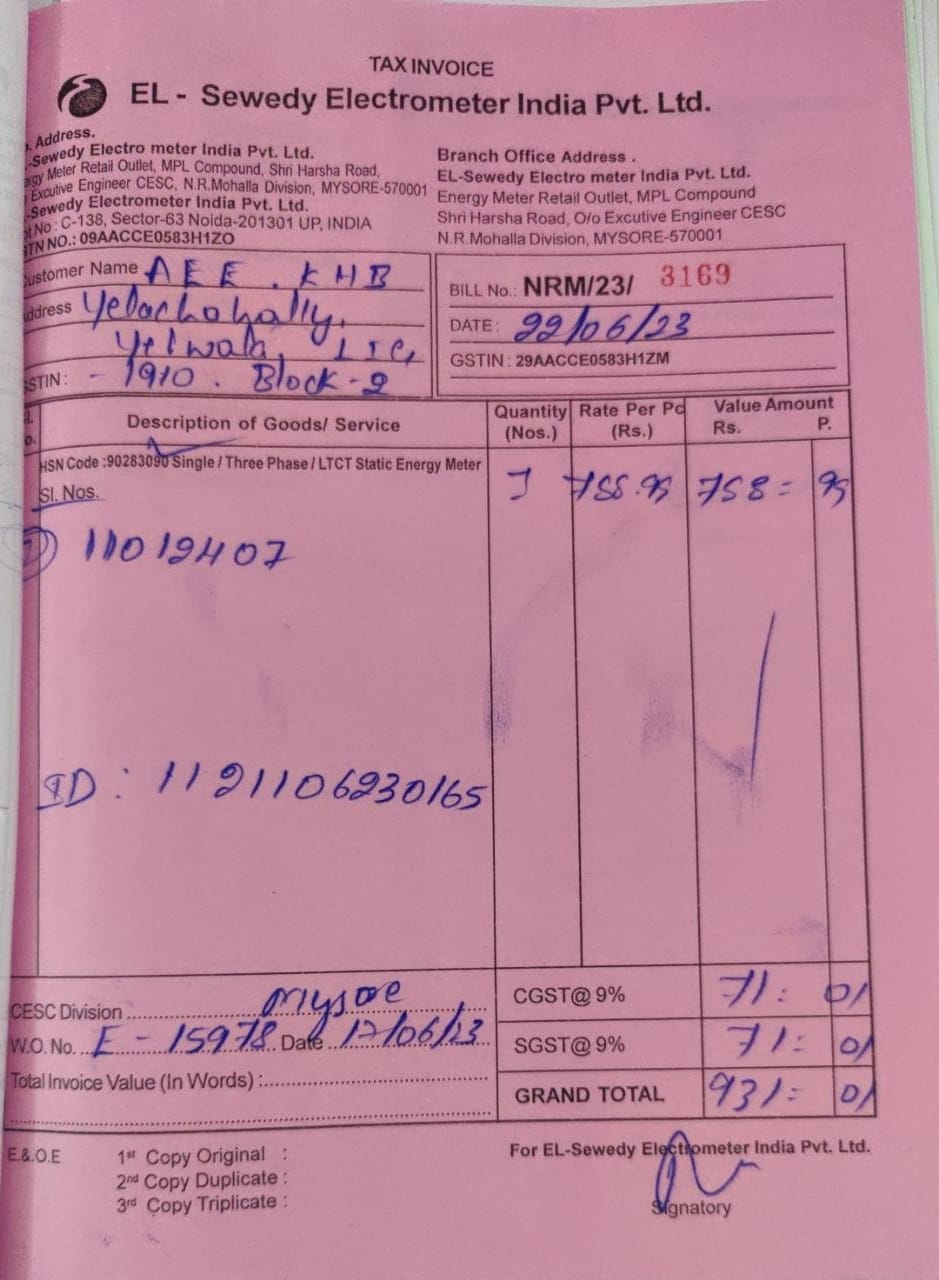 TAX INVOICE
EL - Sewedy Electrometer India Pvt. Ltd.
. Address.
-Sewedy Electro meter India Pvt. Ltd.
Meter Retail Outlet, MPL Compound, Shri Harsha Road,
Excutive Engineer CESC, N.R.Mohalla Division, MYSORE-570001
-Sewedy Electrometer India Pvt. Ltd.
No : C-138, Sector-63 Noida-201301 UP, INDIA
TN NO.: 09AACCE0583H1ZO
Branch Office Address .
EL-Sewedy Electro meter India Pvt. Ltd.
Energy Meter Retail Outlet, MPL Compound
Shri Harsha Road, O/o Excutive Engineer CESC
N.R.Mohalla Division, MYSORE-570001
ustomer Name AEE . KHB
ddress Yelachahally,
Yelwala,
STIN : - 1910 . Block-2
BILL No.: NRM/23/ 3169
DATE : 22/06/23
GSTIN : 29AACCE0583H1ZM
Description of Goods/ Service
Quantity (Nos.)
Rate Per Pc (Rs.)
Value Amount
Rs. P.
HSN Code :90283090 Single / Three Phase / LTCT Static Energy Meter
Sl. Nos.
1 788.99 758= 99
1) 11019407
ID : 1121106230165
CESC Division .......... Mysore
W.O. No. .. E - 15978 .. Date .. 17/06/23
Total Invoice Value (In Words) :
CGST@ 9% 71: 01
SGST@ 9% 71: 01
GRAND TOTAL 931= 01
E.&.O.E
1st Copy Original :
2nd Copy Duplicate :
3rd Copy Triplicate :
For EL-Sewedy Electrometer India Pvt. Ltd.
Signatory